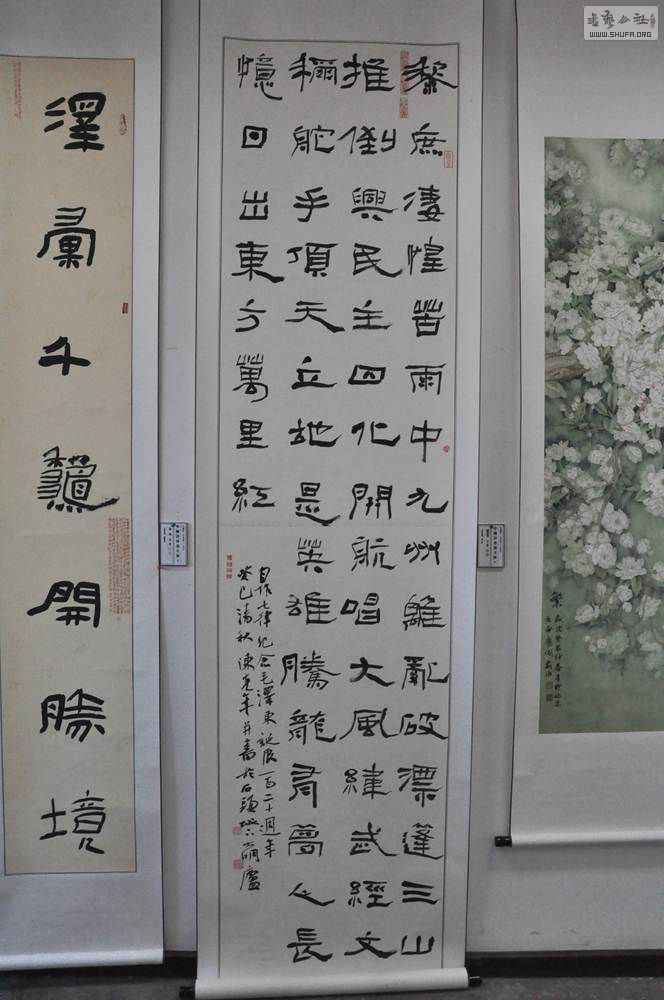 黎庶淒惶苦雨中九州離亂破漂蓬三山
推倒興民主四化開航唱大風緯武經文
稱舵手頂天立地是英雄騰龍尋夢人長
憶日出東方萬里紅
自作七律紀念毛澤東誕辰一百二十週年
癸巳清秋陳克年并書於石頭
澤彙千
開勝境
書藝公社
WWW.SHUFA.ORG